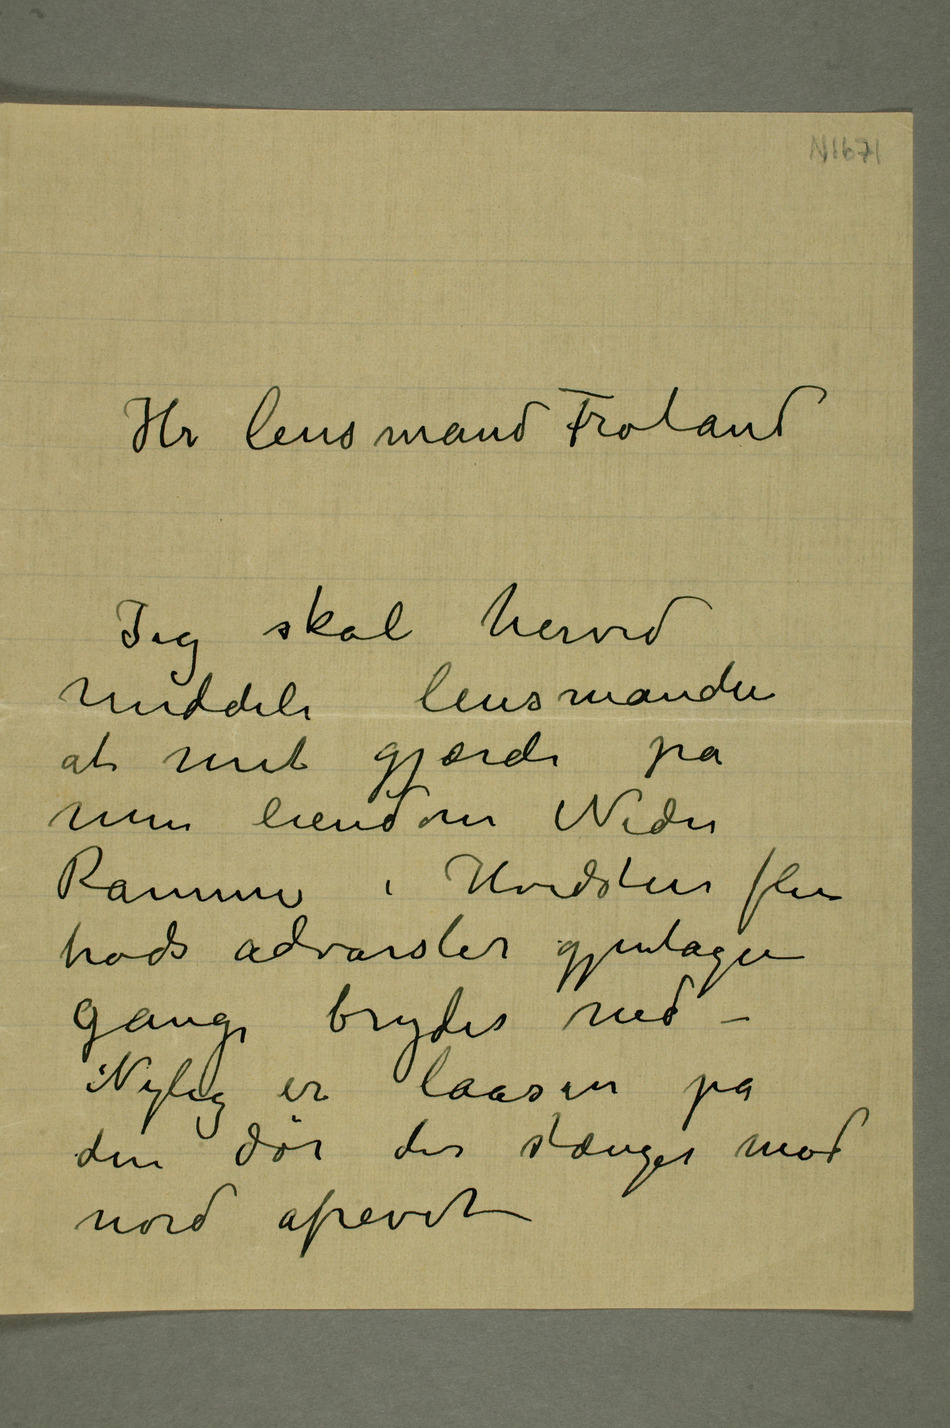 N1671
Hr lensmand Froland
Jeg skal herved
meddele lensmanden
at mit gjærde pa
min eiendom Nedre
Ramme i Hvidsten flere
trods advarsler gjentagen
gange brydes ned –
Nylig er laasen pa
den dör der stænger mod
nord afrevet